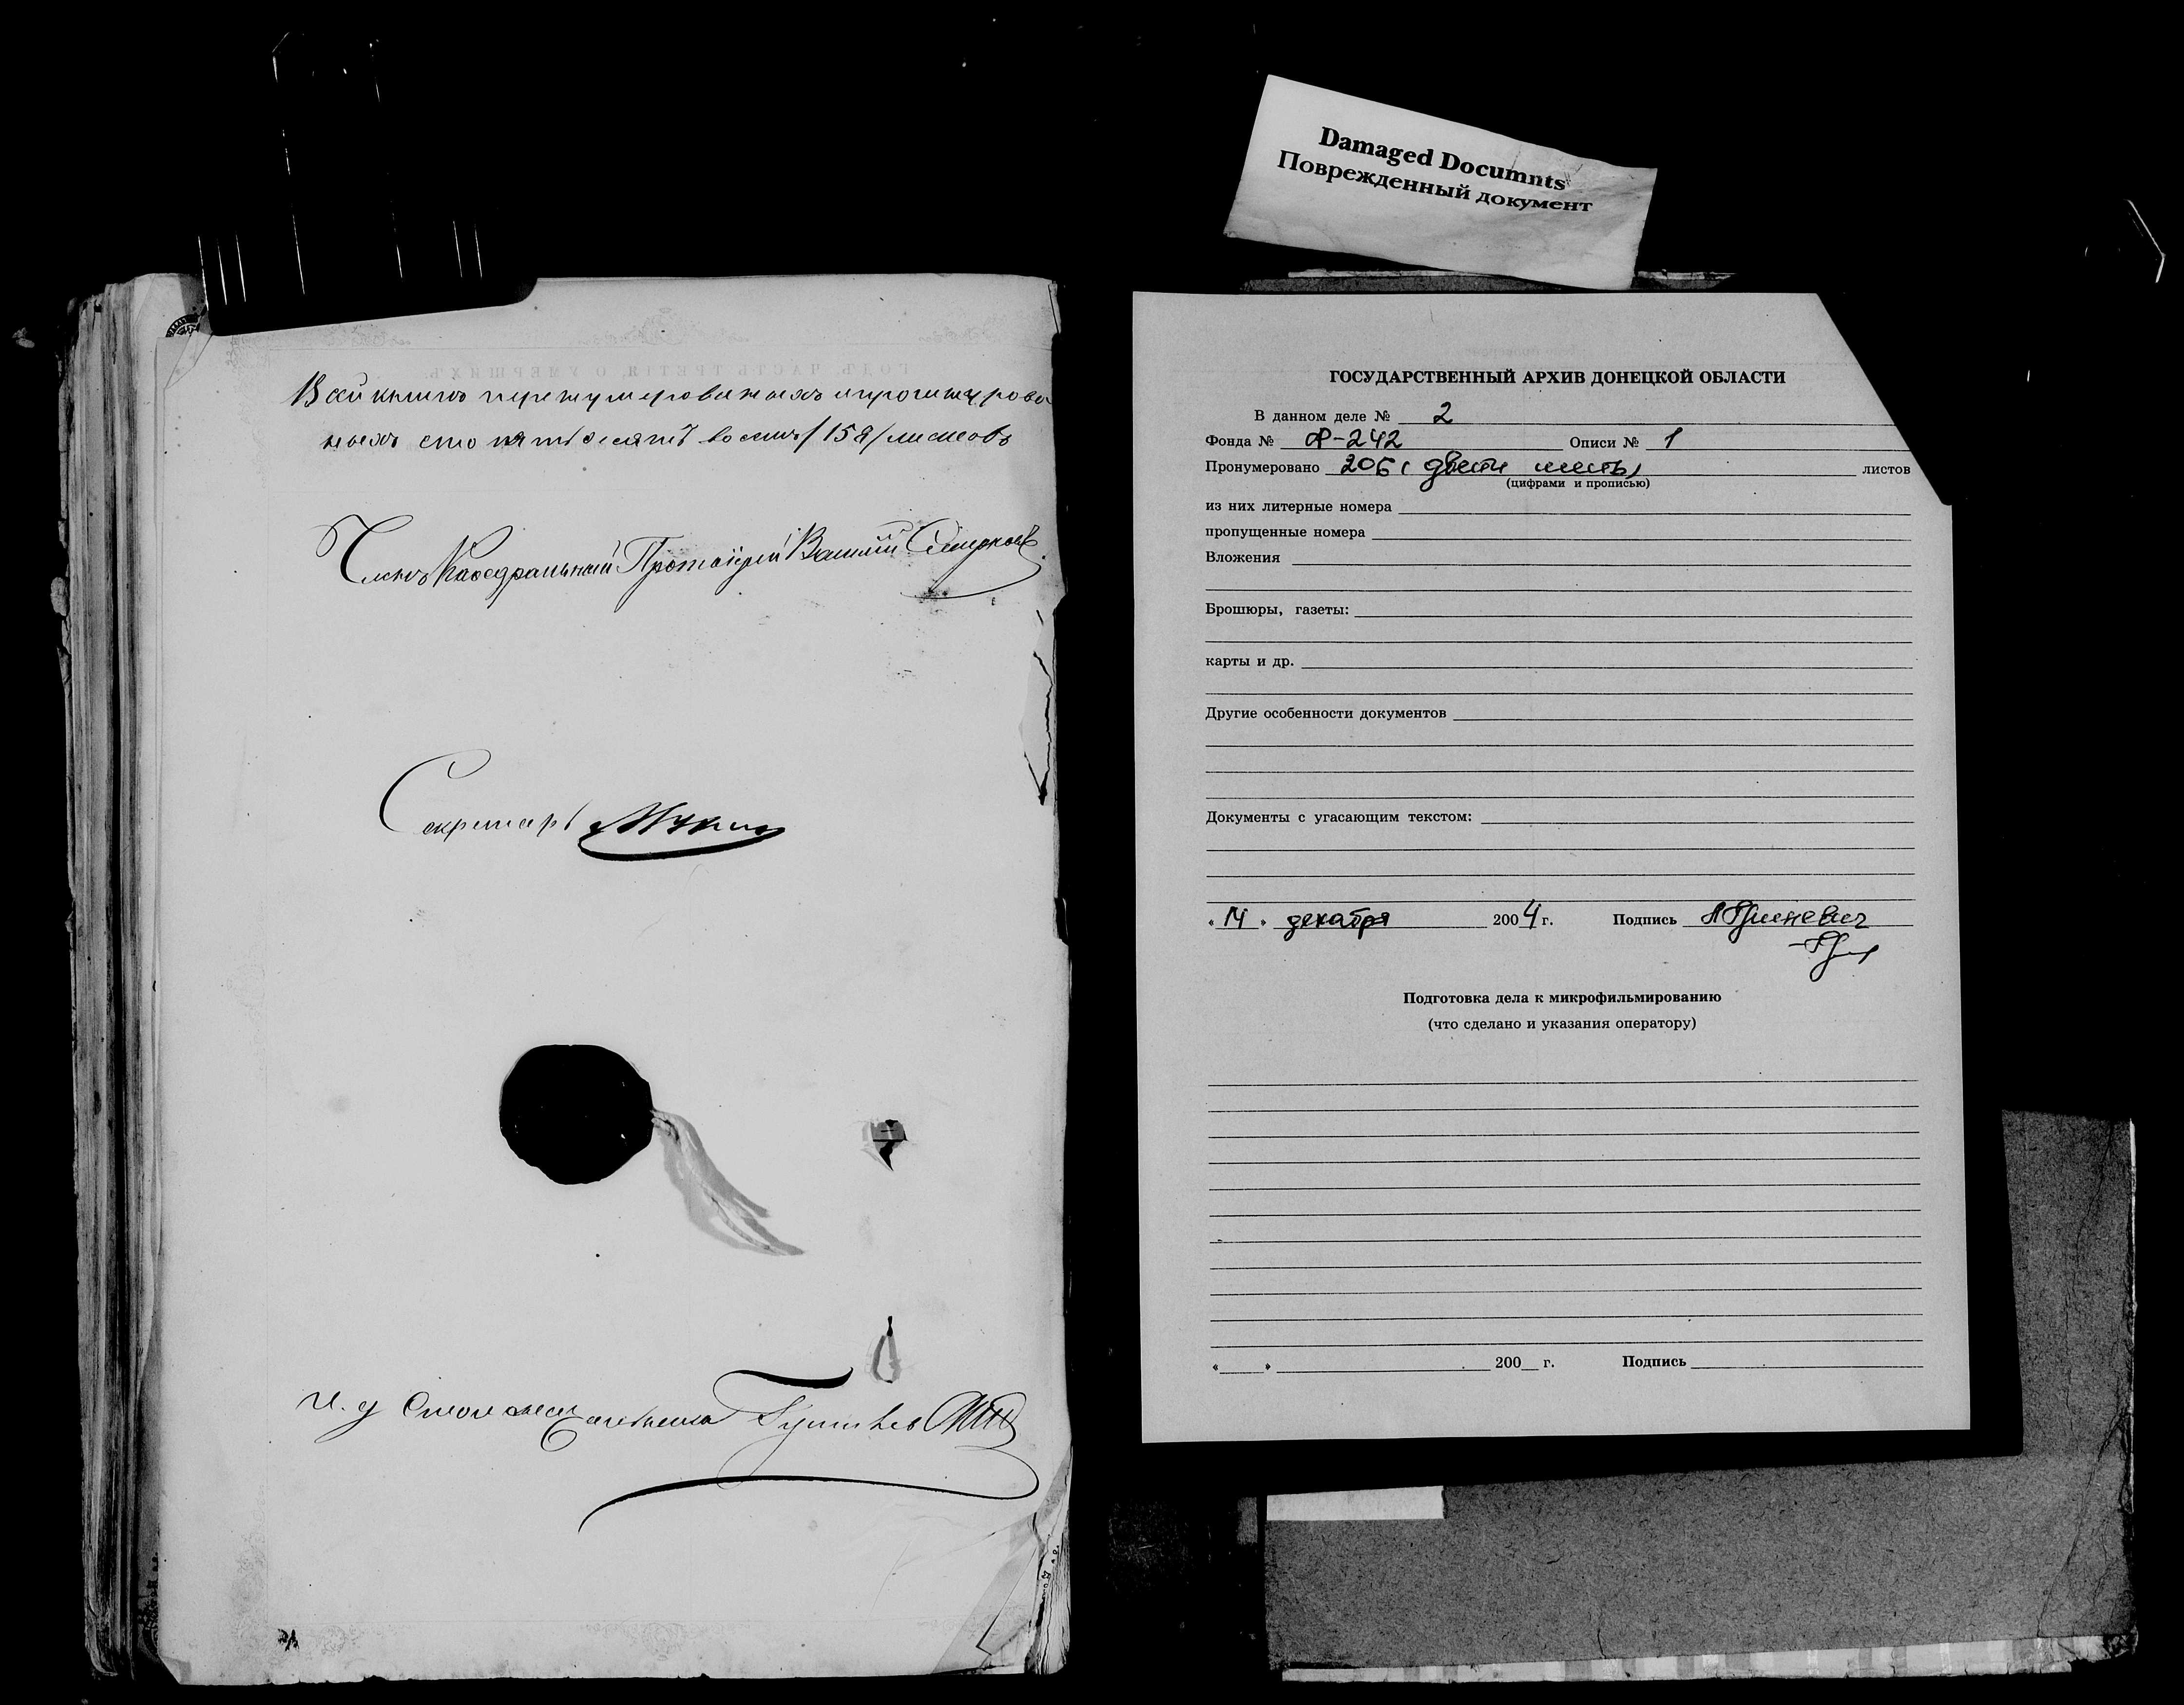 Въ сей книге перенумерованныхъ и прошнурова
нныхъ сто пятьдесятъ восемь /158/ листовъ
Членъ Кафедральный Протоіерей Василій
Секретарь
И. д Столоначальника
Damaged Documnts
Поврежденный документ
ГОСУДАРСТВЕННЫЙ АРХИВ ДОНЕЦКОЙ ОБЛАСТИ
В данном деле № 2
Фонда № Ф-242 Описи № 1
Пронумеровано 206 (двести шесть) листов
(цифрами и прописью)
из них литерные номера
пропущенные номера
Вложения
Брошюры, газеты:
карты и др.
Другие особенности документов
Документы с угасающим текстом:
« 14 » декабря 2004 г. Подпись
Подготовка дела к микрофильмированию
(что сделано и указания оператору)
« » 200 г. Подпись